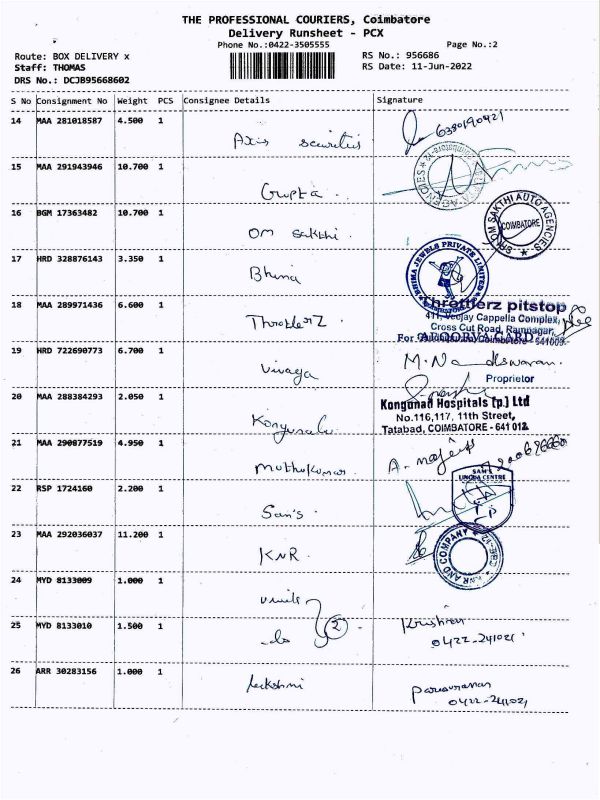 THE PROFESSIONAL COURIERS, Coimbatore
Delivery Runsheet - PCX
Phone No.:0422-3505555
Page No.:2
Route: BOX DELIVERY x
RS No.: 956686
Staff: THOMAS
RS Date: 11-Jun-2022
DRS No.: DCJB95668602
S No Consignment No Weight PCS Consignee Details Signature
14 MAA 281018587 4.500 1 Axis securities 6380190421
15 MAA 291943946 10.700 1 Gupta.
16 BGM 17363482 10.700 1 OM sakthi.
SRI OM SAKTHI AUTO AGENCIES
COIMBATORE
17 HRD 328876143 3.350 1 Bhima
BHIMA JEWELS PRIVATE LIMITED
18 MAA 289971436 6.600 1 ThrottlerZ
Throttlerz pitstop
411, Veejay Cappella Complex,
Cross Cut Road, Ramnagar,
For APOORVA CARD
19 HRD 722690773 6.700 1 Vinaga
Proprietor
20 MAA 288384293 2.050 1
Kongunad Hospitals (p.) Ltd
No.116,117, 11th Street,
Tatabad, COIMBATORE - 641 012.
21 MAA 290877519 4.950 1 Muthukumar
22 RSP 1724160 2.200 1 San's
SAN'S
LINGUA CENTRE
23 MAA 292036037 11.200 1 KNR.
KNR AND COMPANY
24 MYD 8133009 1.000 1
25 MYD 8133010 1.500 1 do 2 Krishnan
0422-241021
26 ARR 30283156 1.000 1 lekshmi
0422-241021